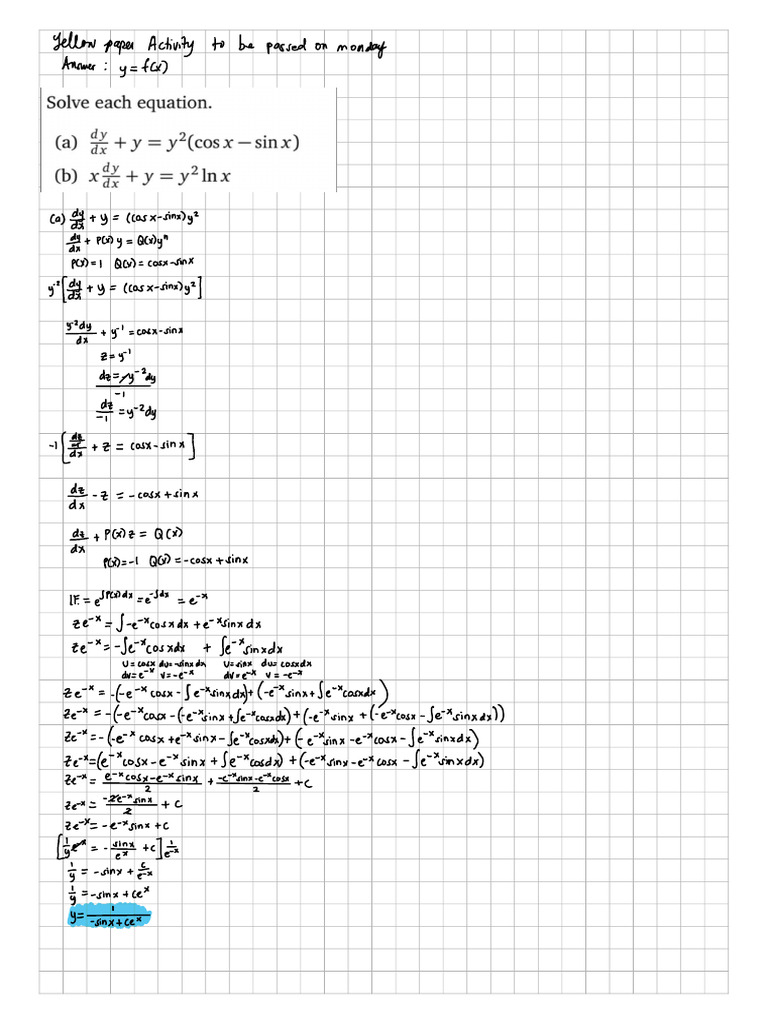 Yellow paper Activity to be passed on monday
Answer : y = f(x)
Solve each equation.
(a) dy/dx + y = y²(cos x − sin x)
(b) x dy/dx + y = y² ln x
(a) dy/dx + y = (cos x - sinx)y²
dy/dx + P(x) y = Q(x)yⁿ
P(x) = 1 Q(x) = cosx - sinx
y⁻² [dy/dx + y = (cos x - sinx)y²]
y⁻²dy/dx + y⁻¹ = cosx - sinx
z = y⁻¹
dz = -y⁻² dy
-1
dz/-1 = y⁻² dy
-1 [dz/-1/dx + z = cosx - sin x]
dz/dx - z = - cosx + sinx
dz/dx + P(x) z = Q(x)
P(x) = -1 Q(x) = -cosx + sinx
I.F. = e^∫P(x)dx = e^-∫dx = e⁻ˣ
ze⁻ˣ = ∫-e⁻ˣcosx dx + e⁻ˣsinx dx
ze⁻ˣ = -∫e⁻ˣcosxdx + ∫e⁻ˣsinxdx
u = cosx du = -sinx dx u = sinx du = cosxdx
dv = e⁻ˣ v = -e⁻ˣ dv = e⁻ˣ v = -e⁻ˣ
ze⁻ˣ = -(-e⁻ˣ cosx - ∫e⁻ˣsinxdx) + (-e⁻ˣsinx + ∫e⁻ˣcosxdx)
ze⁻ˣ = -(-e⁻ˣcosx - (-e⁻ˣsinx + ∫e⁻ˣcosxdx) + (-e⁻ˣsinx + (-e⁻ˣcosx - ∫e⁻ˣsinxdx))
ze⁻ˣ = -(-e⁻ˣ cosx + e⁻ˣsinx - ∫e⁻ˣcosxdx) + (-e⁻ˣsinx - e⁻ˣcosx - ∫e⁻ˣsinxdx)
ze⁻ˣ = (e⁻ˣcosx - e⁻ˣsinx + ∫e⁻ˣcosdx) + (-e⁻ˣsinx - e⁻ˣcosx - ∫e⁻ˣsinxdx)
ze⁻ˣ = e⁻ˣcosx - e⁻ˣsinx/2 + -e⁻ˣsinx - e⁻ˣcosx/2 + C
ze⁻ˣ = -2e⁻ˣsinx/2 + C
ze⁻ˣ = -e⁻ˣsinx + C
[1/y e⁻ˣ = - sinx/eˣ + C] 1/e⁻ˣ
1/y = -sinx + C/e⁻ˣ
1/y = -sinx + Ceˣ
y = 1/-sinx + Ceˣ